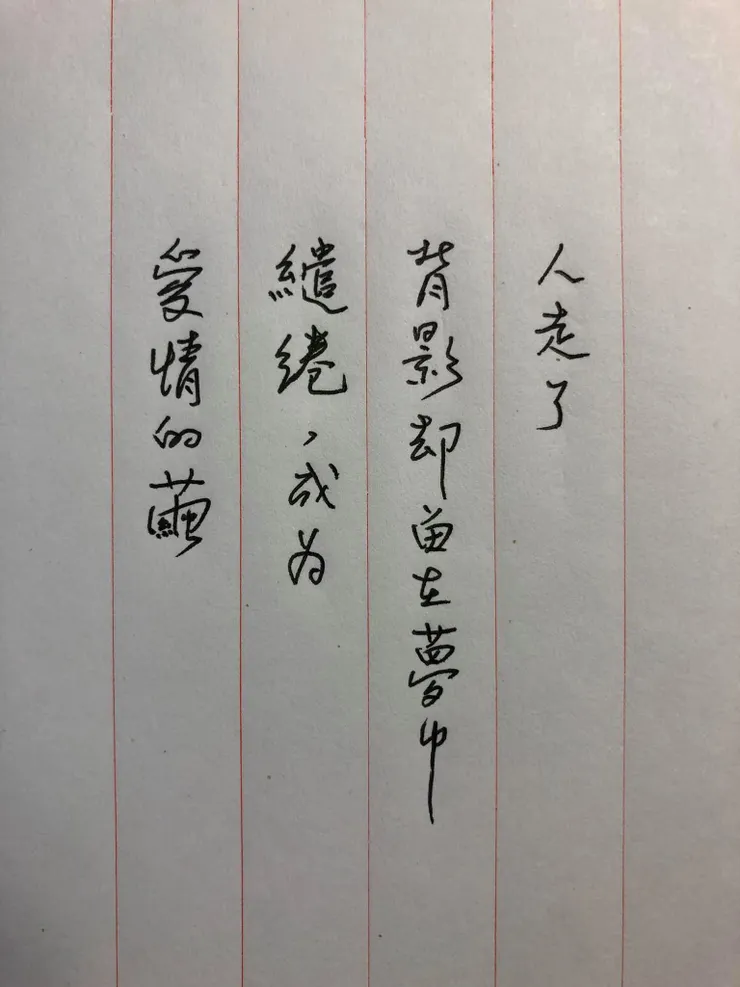 人走了
背影却留在夢中
繾綣，成为
愛情的繭